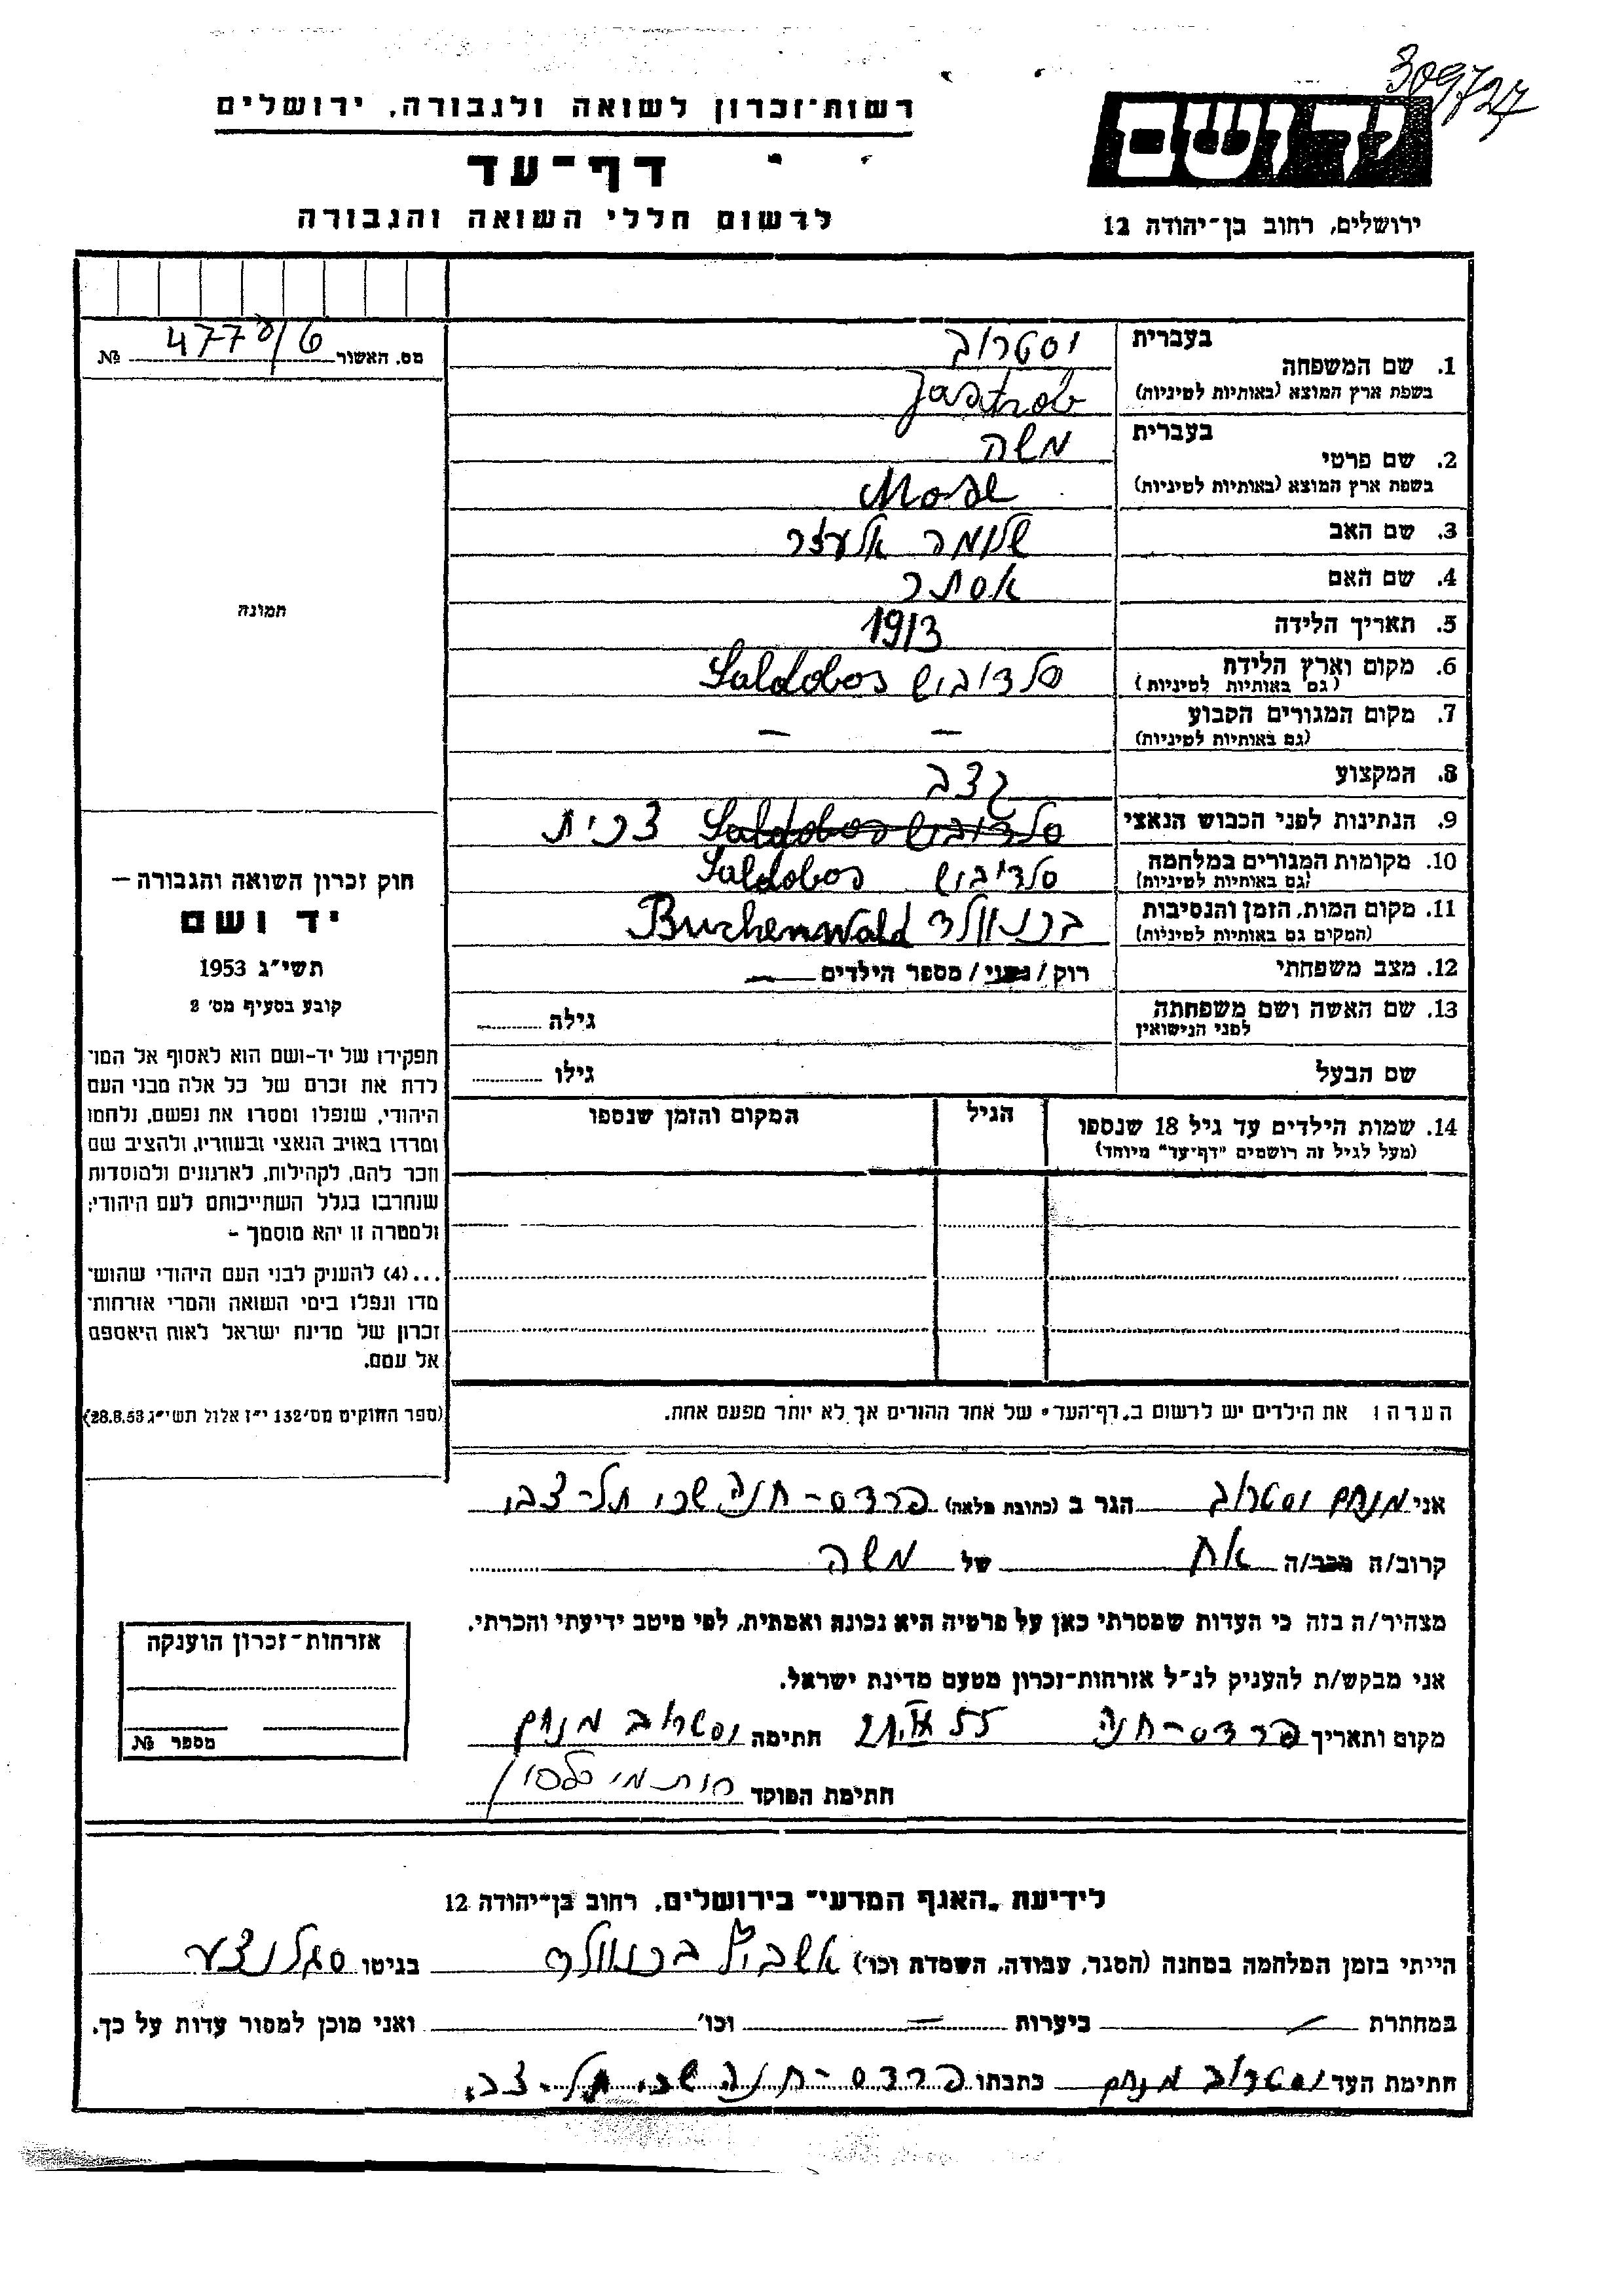 309727
רשות־זכרון לשואה ולגבורה, ירושלים
דף־עד
לרשום חללי השואה והגבורה
יד ושם
ירושלים, רחוב בן־יהודה 12
מס. האשור № 477
1. שם המשפחה בעברית יסטרוב
בשפת ארץ המוצא (באותיות לטיניות) Jastrob
2. שם פרטי בעברית משה
בשפת ארץ המוצא (באותיות לטיניות) Mose
3. שם האב שלומה אלעזר
4. שם האם אסתר
5. תאריך הלידה 1913
6. מקום וארץ הלידה סלדובוש Saldobos
(גם באותיות לטיניות)
7. מקום המגורים הקבוע — —
(גם באותיות לטיניות)
8. המקצוע קצב
9. הנתינות לפני הכבוש הנאצי סלדובוש Saldobos צכית
10. מקומות המגורים במלחמה סלדובוש Saldobos
(גם באותיות לטיניות)
11. מקום המות, הזמן והנסיבות בכנוולד Buchenwald
(המקום גם באותיות לטיניות)
12. מצב משפחתי רוק / נשוי / מספר הילדים —
13. שם האשה ושם משפחתה גילה
לפני הנישואין
שם הבעל גילו
14. שמות הילדים עד גיל 18 שנספו הגיל המקום והזמן שנספו
(מעל לגיל זה רושמים "דף־עד" מיוחד)
העדה: את הילדים יש לרשום ב„דף־העד" של אחד ההורים אך לא יותר מפעם אחת.
תמונה
חוק זכרון השואה והגבורה —
יד ושם
תשי"ג 1953
קובע בסעיף מס' 2
תפקידו של יד־ושם הוא לאסוף אל המו־
לדת את זכרם של כל אלה מבני העם
היהודי, שנפלו ומסרו את נפשם, נלחמו
ומרדו באויב הנאצי ובעוזריו, ולהציב שם
וזכר להם, לקהילות, לארגונים ולמוסדות
שנחרבו בגלל השתייכותם לעם היהודי;
ולמטרה זו יהא מוסמך –
...(4) להעניק לבני העם היהודי שהוש־
מדו ונפלו בימי השואה והמרי אזרחות־
זכרון של מדינת ישראל לאות היאספם
אל עמם.
(ספר החוקים מס' 132 י"ז אלול תשי"ג 28.8.53)
אני מנחם יסטרוב הגר ב (כתובת מלאה) פרדס-חנה שכ' תל-צבי
קרוב/ה מכר/ה אח של משה
מצהיר/ה בזה כי העדות שמסרתי כאן על פרטיה היא נכונה ואמתית, לפי מיטב ידיעתי והכרתי.
אני מבקש/ת להעניק לנ"ל אזרחות־זכרון מטעם מדינת ישראל.
מקום ותאריך פרדס-חנה 55 חתימה יסטרוב מנחם
חתימת הפוקד
אזרחות־זכרון הוענקה
מספר №
לידיעת „האגף המדעי" בירושלים, רחוב בן־יהודה 12
הייתי בזמן המלחמה במחנה (הסגר, עבודה, השמדה וכו') אשביץ בכנוולד בגיטו סגלנצע
במחתרת — ביערות = וכו' ואני מוכן למסור עדות על כך.
חתימת העד יסטרוב מנחם כתבתו פרדס-חנה שכ' תל-צבי